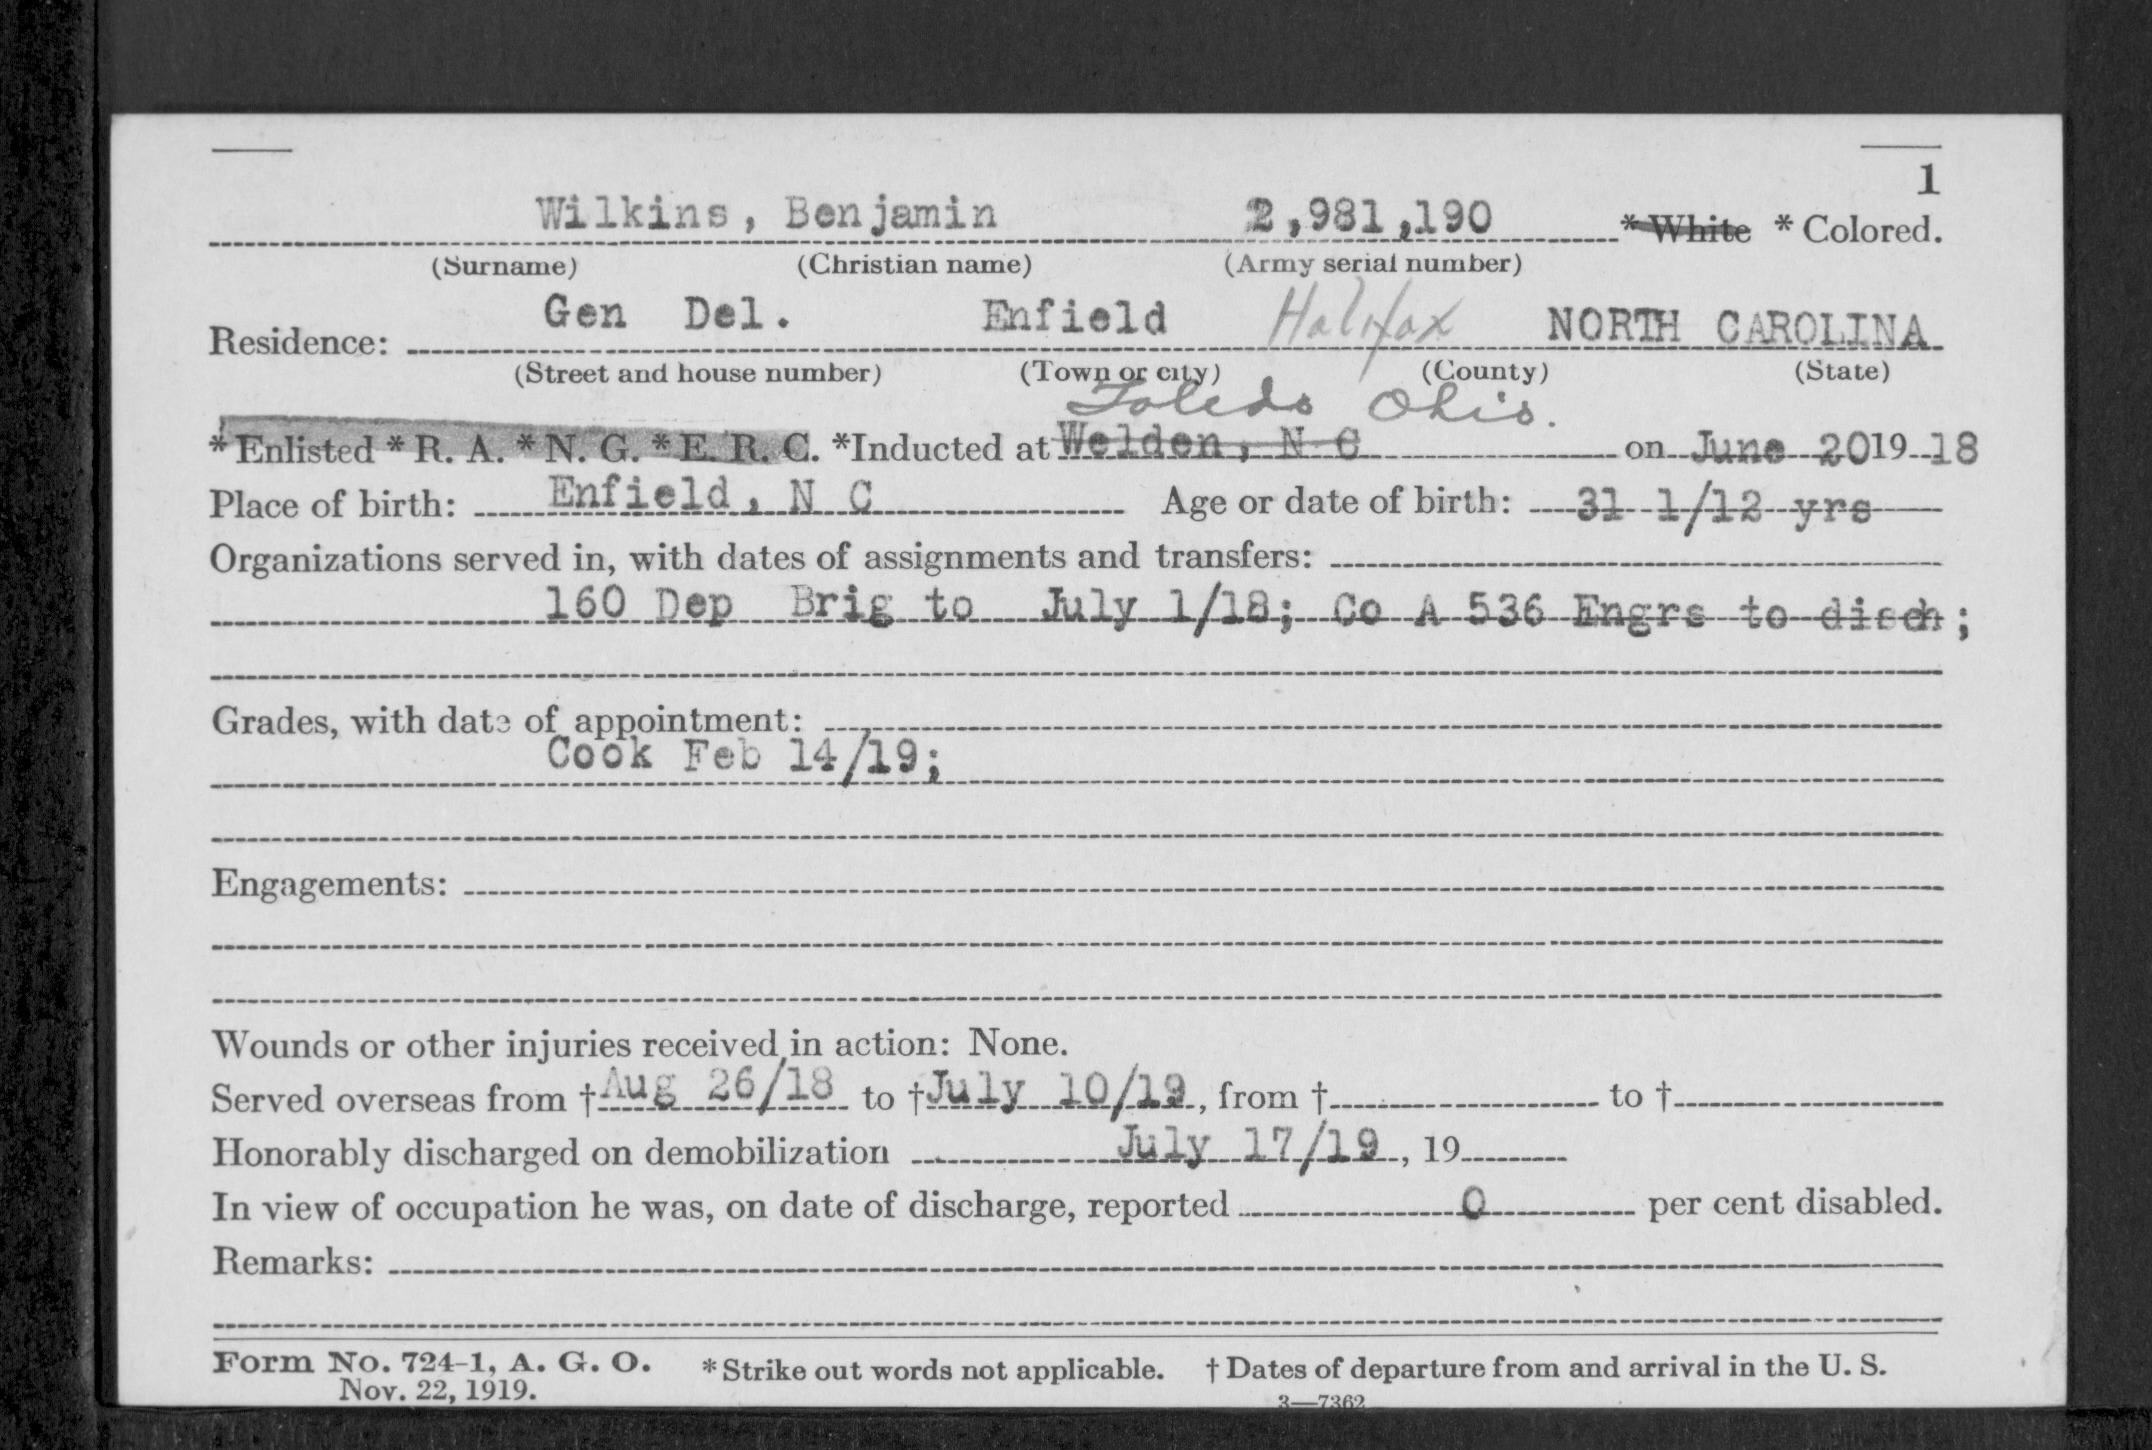 1
Wilkins, Benjamin 2,981,190 * White * Colored.
(Surname) (Christian name) (Army serial number)
Gen Del. Enfield Halifax NORTH CAROLINA
Residence:
(Street and house number) (Town or city) (County) (State)
Toledo Ohio.
* Enlisted * R. A. * N. G. * E. R. C. *Inducted at Welden, N C on June 20 19 18
Place of birth: Enfield, N C Age or date of birth: 31 1/12 yrs
Organizations served in, with dates of assignments and transfers:
160 Dep Brig to July 1/18; Co A 536 Engrs to disch;
Grades, with date of appointment:
Cook Feb 14/19;
Engagements:
Wounds or other injuries received in action: None.
Served overseas from † Aug 26/18 to † July 10/19, from † to †
Honorably discharged on demobilization July 17/19, 19
In view of occupation he was, on date of discharge, reported 0 per cent disabled.
Remarks:
Form No. 724-1, A. G. O. * Strike out words not applicable. † Dates of departure from and arrival in the U. S.
Nov. 22, 1919.
3—7362